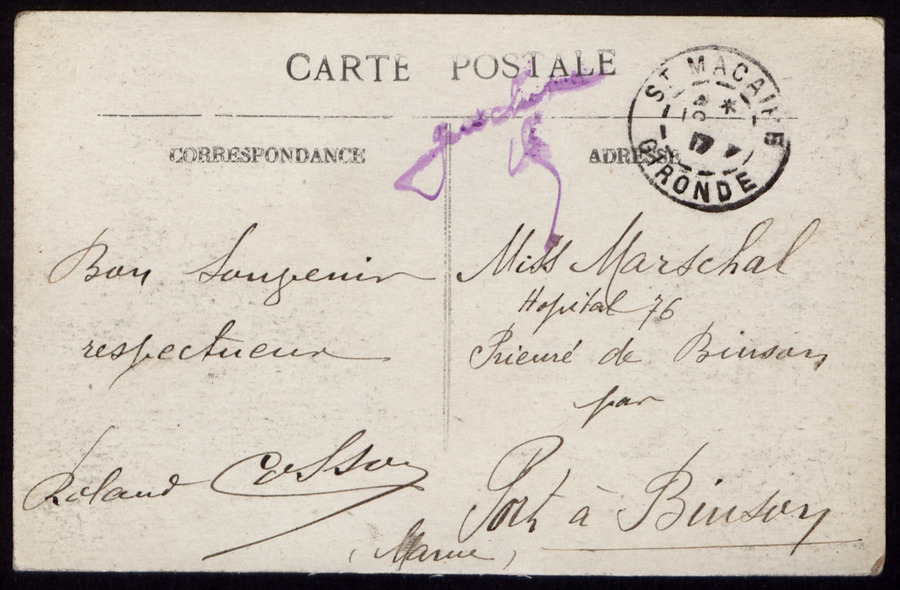 CARTE POSTALE
ST MACAIRE
GIRONDE
CORRESPONDANCE
ADRESSE
Bon Souvenir
respectueux
Roland Cosson
Miss Marschal
Hopital 76
Prieuré de Binson
par
Port à Binson
(Marne)